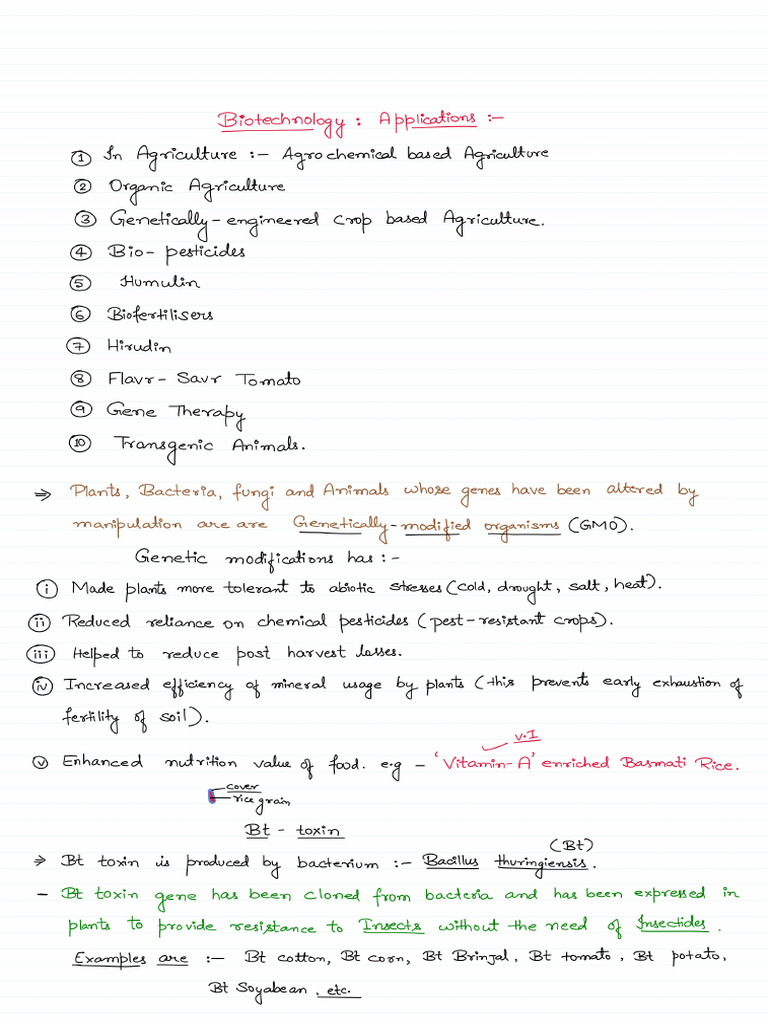 Biotechnology : Applications :-
① In Agriculture :- Agrochemical based Agriculture
② Organic Agriculture
③ Genetically-engineered crop based Agriculture.
④ Bio-pesticides
⑤ Humulin
⑥ Biofertilisers
⑦ Hirudin
⑧ Flavr-Savr Tomato
⑨ Gene Therapy
⑩ Transgenic Animals.
⇒ Plants, Bacteria, fungi and Animals whose genes have been altered by
manipulation are are Genetically-modified organisms (GMO).
Genetic modifications has :-
ⓘ Made plants more tolerant to abiotic stresses (cold, drought, salt, heat).
ⓘⓘ Reduced reliance on chemical pesticides (pest-resistant crops).
ⓘⓘⓘ Helped to reduce post harvest losses.
ⓘⓥ Increased efficiency of mineral usage by plants (this prevents early exhaustion of
fertility of soil).
V.I
ⓥ Enhanced nutrition value of food. e.g - 'Vitamin-A' enriched Basmati Rice.
cover
rice grain
Bt - toxin
(Bt)
⇒ Bt toxin is produced by bacterium :- Bacillus thuringiensis.
- Bt toxin gene has been cloned from bacteria and has been expressed in
plants to provide resistance to Insects without the need of Insectides.
Examples are :- Bt cotton, Bt corn, Bt Brinjal, Bt tomato, Bt potato,
Bt Soyabean. etc.